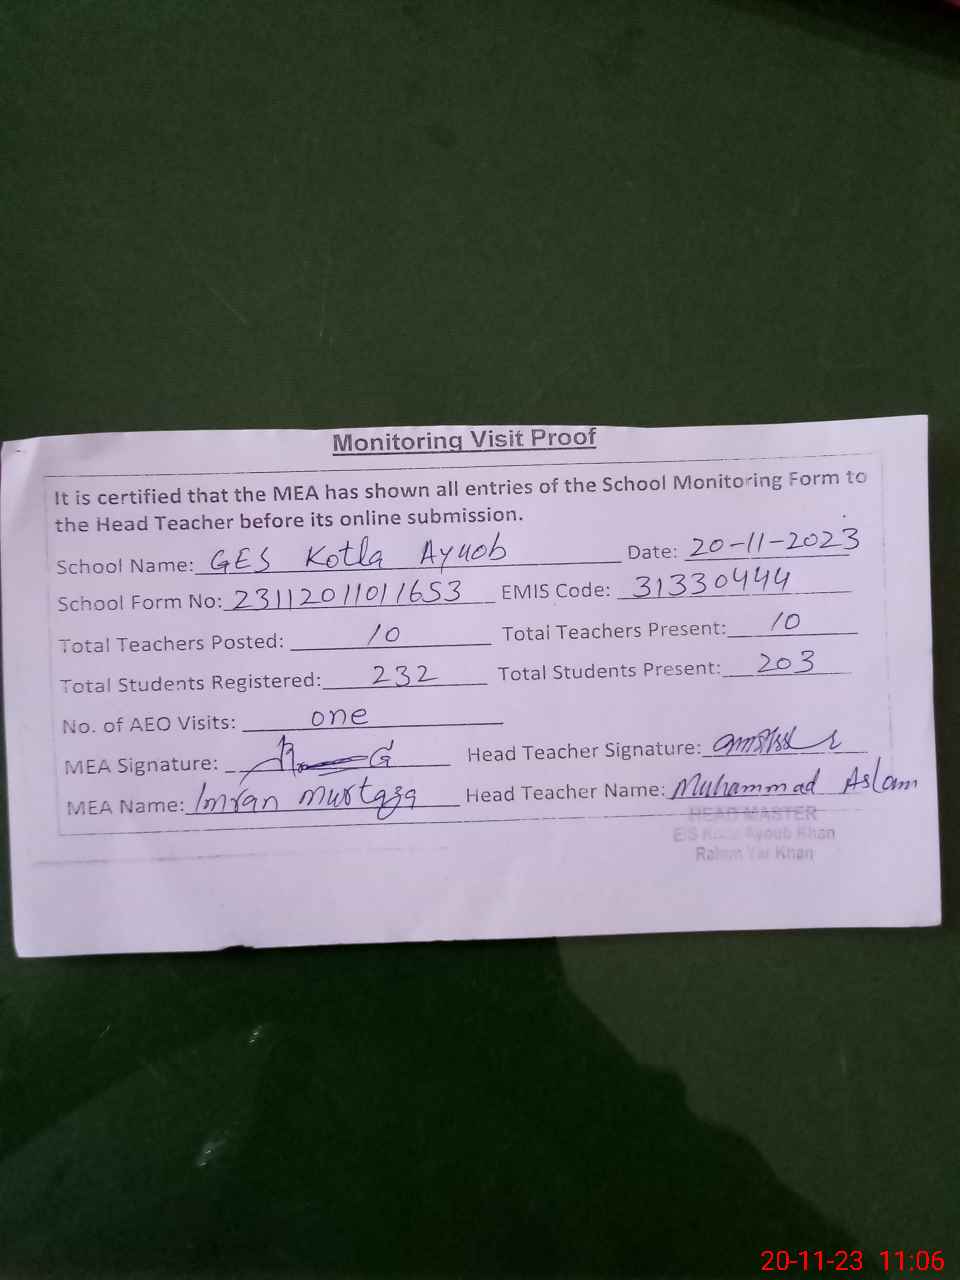 Monitoring Visit Proof
It is certified that the MEA has shown all entries of the School Monitoring Form to
the Head Teacher before its online submission.
School Name: GES Kotla Ayuob Date: 20-11-2023
School Form No: 23112011011653 EMIS Code: 31330444
Total Teachers Posted: 10 Total Teachers Present: 10
Total Students Registered: 232 Total Students Present: 203
No. of AEO Visits: one
MEA Signature: Head Teacher Signature:
MEA Name: Imran murtaza Head Teacher Name: Muhammad Aslam
HEAD MASTER
E/S Ayoub Khan
Rahim Yar Khan
20-11-23 11:06